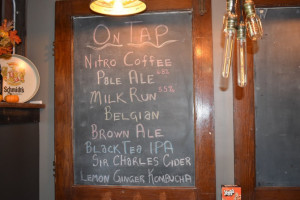 On Tap
Nitro Coffee
Pale Ale
Milk Run 5.5%
Belgian
Brown Ale
Black Tea IPA
Sir Charles Cider
Lemon Ginger Kombucha
Schmidt's